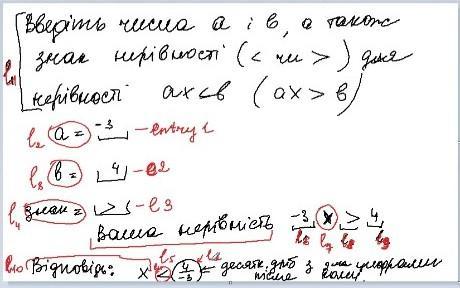 Введіть числа a і b, а також
знак нерівності (< чи >) для
l11 нерівності ax<b (ax > b)
l2 a = -3 - entry1
l3 b = 4 - e2
l4 знак = > - e3
Ваша нерівність -3 x > 4
l6 l7 l8 l9
l10 Відповідь: x < 4/-3 ← десятк. дріб з двома цифрами
l5
після коми.